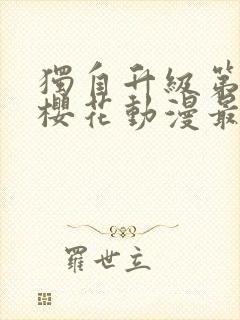 獨自升級第
櫻花動漫最
羅世立